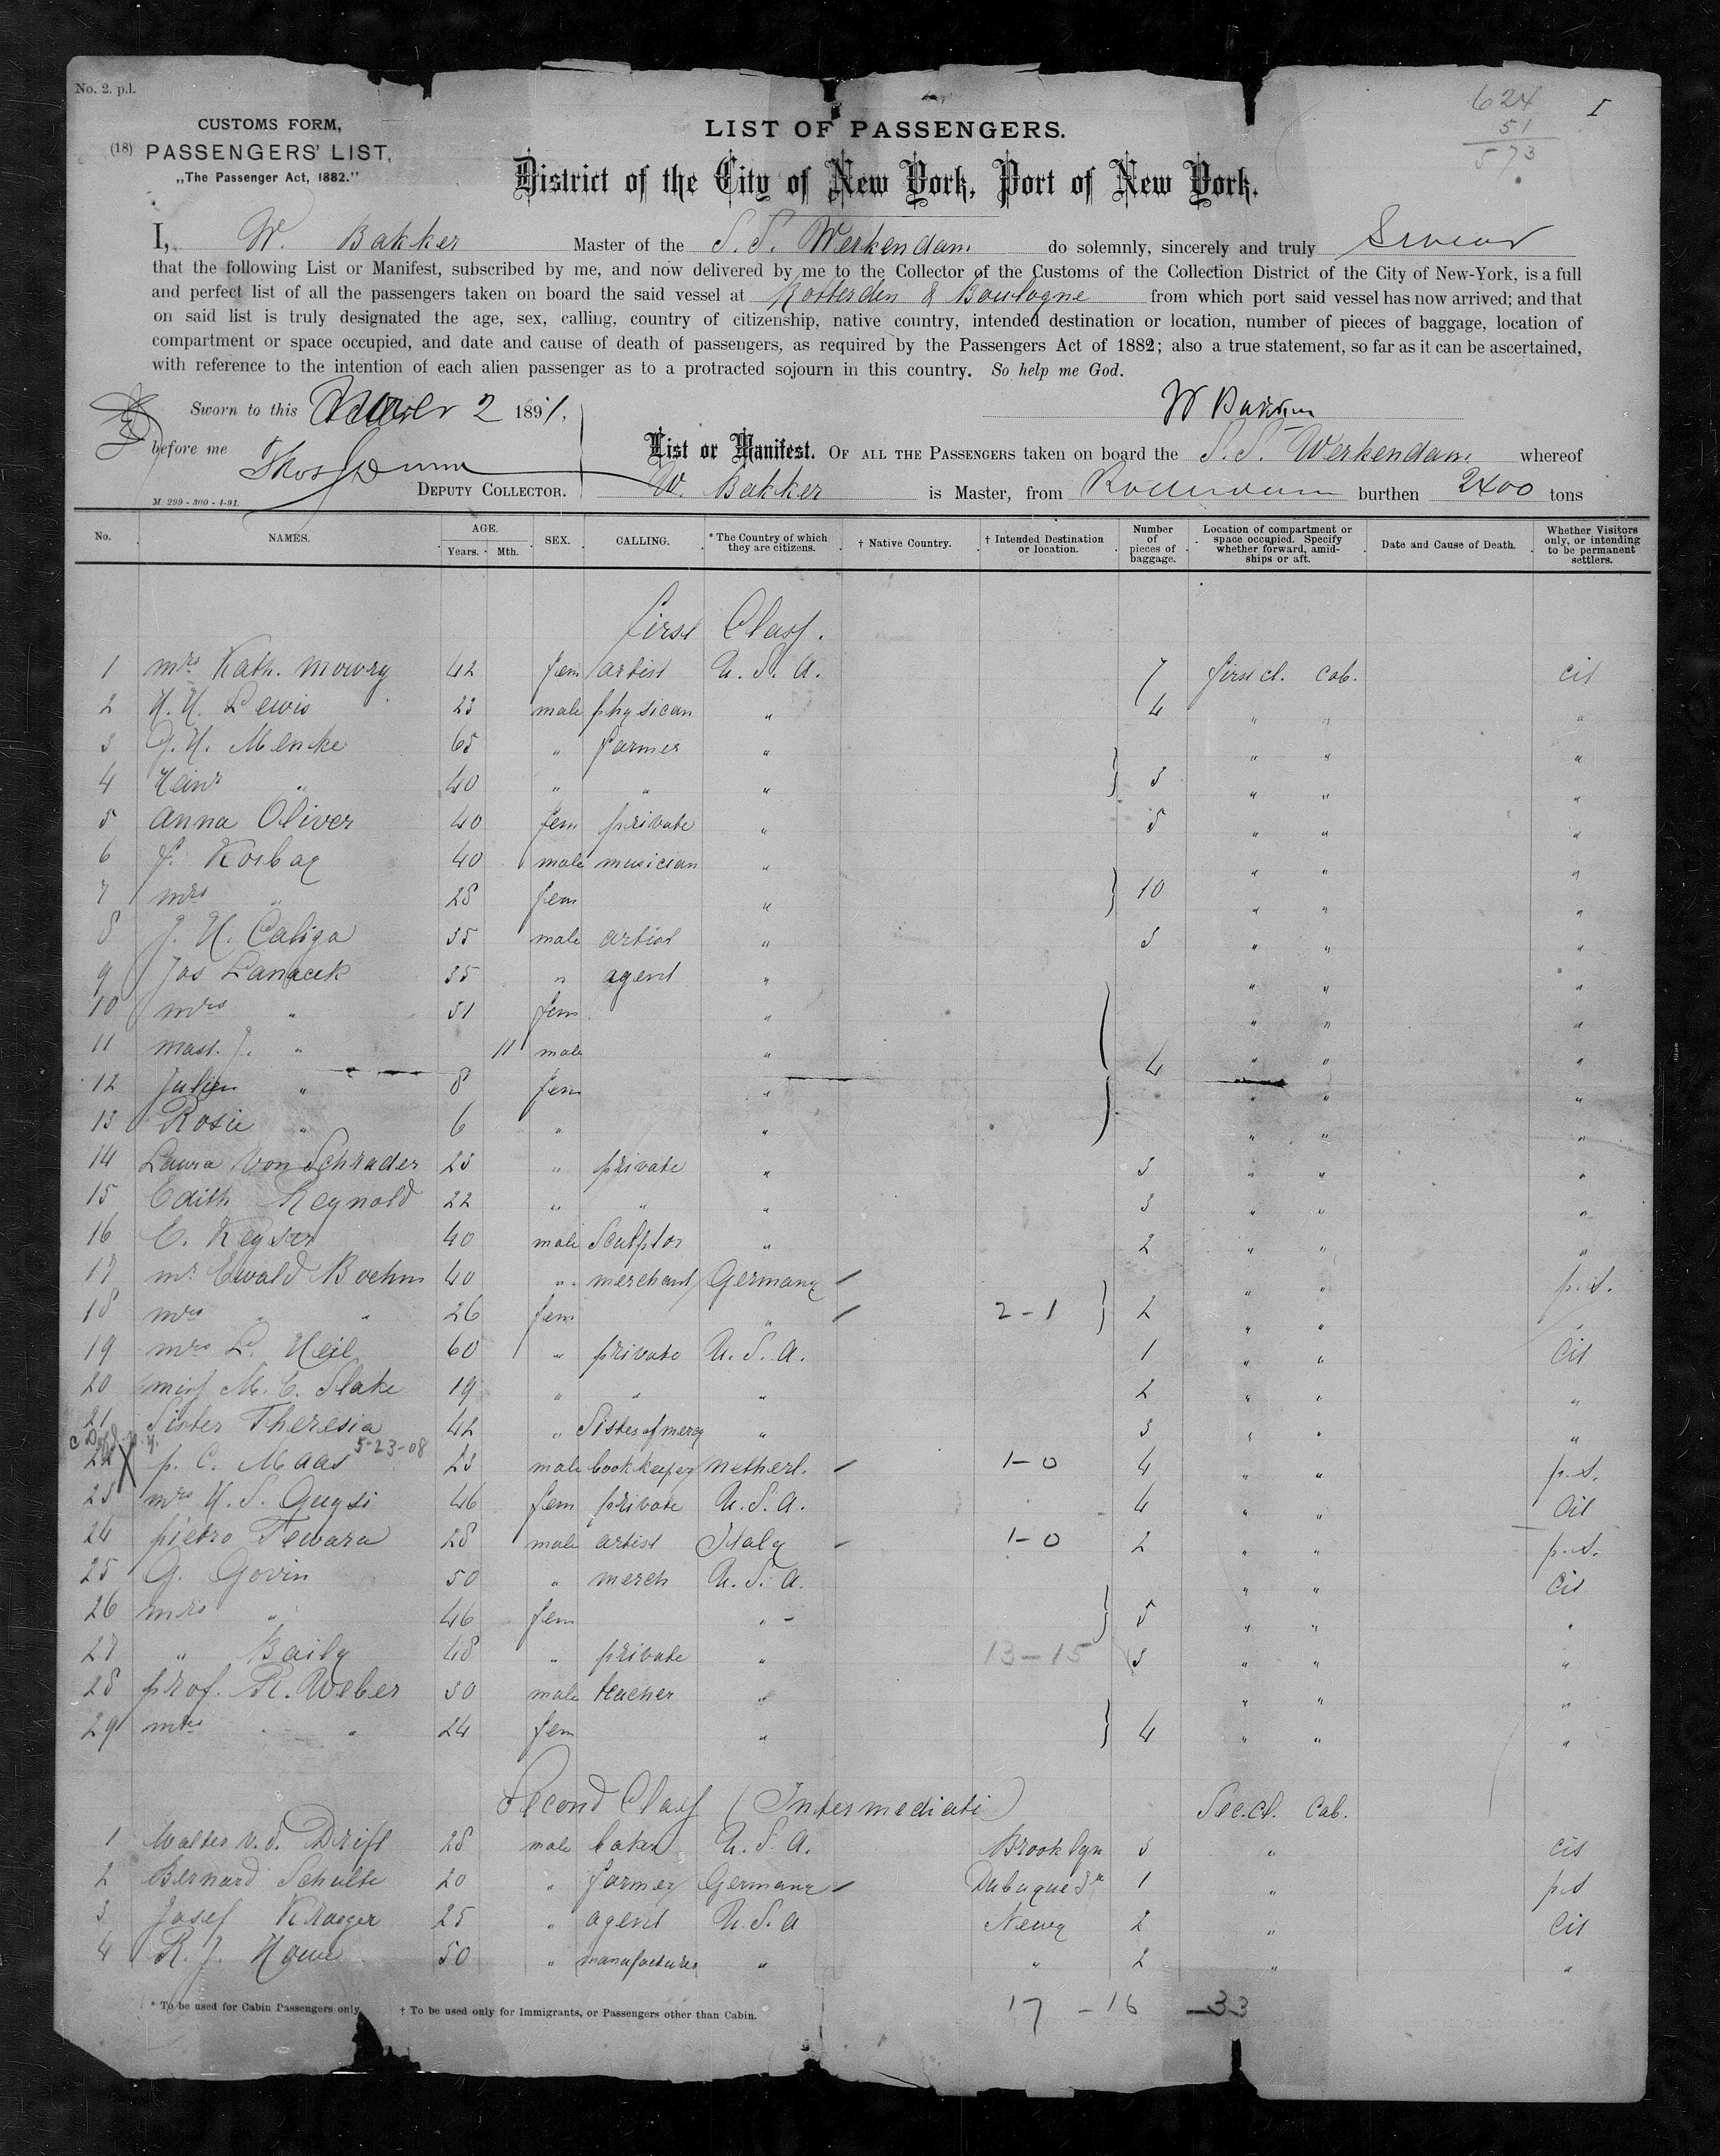 No. 2. p.l.
624
51
573
I
CUSTOMS FORM,
(18) PASSENGERS' LIST,
„The Passenger Act, 1882."
LIST OF PASSENGERS.
District of the City of New York, Port of New York.
I, W. Bakker Master of the S.S. Werkendam do solemnly, sincerely and truly Swear
that the following List or Manifest, subscribed by me, and now delivered by me to the Collector of the Customs of the Collection District of the City of New-York, is a full
and perfect list of all the passengers taken on board the said vessel at Rotterdm & Boulogne from which port said vessel has now arrived; and that
on said list is truly designated the age, sex, calling, country of citizenship, native country, intended destination or location, number of pieces of baggage, location of
compartment or space occupied, and date and cause of death of passengers, as required by the Passengers Act of 1882; also a true statement, so far as it can be ascertained,
with reference to the intention of each alien passenger as to a protracted sojourn in this country. So help me God.
Sworn to this 2 1891. W Bakker
before me Thos Dunn
DEPUTY COLLECTOR.
M. 299 - 300 - 4-91.
List or Manifest. OF ALL THE PASSENGERS taken on board the S.S. Werkendam whereof
W. Bakker is Master, from Rotterdam burthen 2400 tons
No. NAMES. AGE. Years. Mth. SEX. CALLING. * The Country of which they are citizens. † Native Country. † Intended Destination or location. Number of pieces of baggage. Location of compartment or space occupied. Specify whether forward, amidships or aft. Date and Cause of Death. Whether Visitors only, or intending to be permanent settlers.
First Class.
1 Mrs Kath. Mowry 42 fem artist U.S.A. 7 first cl. cab. cit
2 H. H. Lewis 23 male physican " 4 " " "
3 G. H. Menke 65 " farmer " " " "
4 Heinr " 40 " " " } 3 " " "
5 Anna Oliver 40 fem private " 5 " " "
6 F. Korbay 40 male musician " " " "
7 mrs " 28 fem " } 10 " " "
8 J. H. Caliga 35 male artist " 3 " " "
9 Jos Lanacek 35 " agent " " " "
10 mrs " 31 fem " " " "
11 mast. J. " 11 male " " " "
12 Julien " 8 fem " } 4 " " "
13 Rosie " 6 " " " " "
14 Laura von Schrader 23 " private " 3 " " "
15 Edith Reynold 22 " " " 3 " " "
16 E. Keyser 40 male Sculptor " 2 " " "
17 mr Ewald Boehm 40 " merchant Germany / " " p.s.
18 mrs " " 26 fem " / 2-1 } 2 " " "
19 mrs L. Heil 60 " private U.S.A. 1 " " Cit
20 miss M. C. Slake 19 " " " 2 " " "
21 Sister Theresia 42 " Sister of mercy " 3 " " "
5-23-08
22 p. C. Maas 23 male bookkeeper Netherl. / 1-0 4 " " p.s.
23 mrs H. S. Gugsi 46 fem private U.S.A. 4 " " Cit
24 pietro Tewara 28 male artist Italy - 1-0 2 " " p.s.
25 G. Govin 50 " merch U.S.A. " " Cit
26 mrs " 46 fem " - } 5 " " "
27 " Baily 48 " private " 13-15 3 " " "
28 prof. R. Weber 30 male teacher " " " "
29 mrs " " 24 fem " } 4 " " "
Second Class (Intermediate) Sec.cl. Cab.
1 Walter v. d. Drift 28 male baker U.S.A. Brooklyn 3 " cit
2 Bernard Schulte 20 " farmer Germany / Dubuque 1 " p.s
3 Josef Krueger 25 " agent U.S.A Newy 2 " Cit
4 R. J. Howe 50 " manufacturer " " 2 " "
* To be used for Cabin Passengers only. † To be used only for Immigrants, or Passengers other than Cabin.
17 - 16 - 33